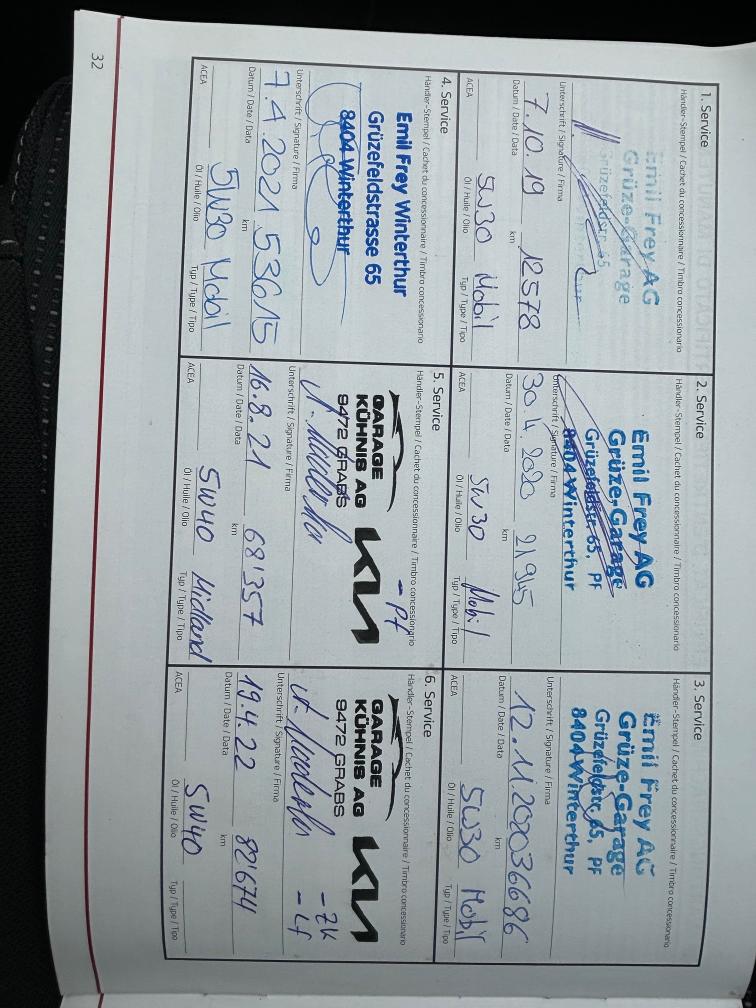 1. Service
Händler-Stempel / Cachet du concessionnaire / Timbro concessionario
Emil Frey AG
Grüze-Garage
Grüzefeldstr. 65
Unterschrift / Signature / Firma
7.10.19 12578
Datum / Date / Data km
5W30 Mobil
ACEA Öl / Huile / Olio Typ / Type / Tipo
2. Service
Händler-Stempel / Cachet du concessionnaire / Timbro concessionario
Emil Frey AG
Grüze-Garage
Grüzefeldstr. 65, PF
8404 Winterthur
Unterschrift / Signature / Firma
30.4.2020 21945
Datum / Date / Data km
5W30 Mobil
ACEA Öl / Huile / Olio Typ / Type / Tipo
3. Service
Händler-Stempel / Cachet du concessionnaire / Timbro concessionario
Emil Frey AG
Grüze-Garage
Grüzefeldstr. 65, PF
8404 Winterthur
Unterschrift / Signature / Firma
12.11.2020 36686
Datum / Date / Data km
5W30 Mobil
ACEA Öl / Huile / Olio Typ / Type / Tipo
4. Service
Händler-Stempel / Cachet du concessionnaire / Timbro concessionario
Emil Frey Winterthur
Grüzefeldstrasse 65
8404 Winterthur
Unterschrift / Signature / Firma
7.4.2021 53615
Datum / Date / Data km
5W30 Mobil
ACEA Öl / Huile / Olio Typ / Type / Tipo
5. Service
Händler-Stempel / Cachet du concessionnaire / Timbro concessionario
- Pf
GARAGE
KÜHNIS AG KIA
9472 GRABS
Unterschrift / Signature / Firma
16.8.21 68'357
Datum / Date / Data km
5W40 Midland
ACEA Öl / Huile / Olio Typ / Type / Tipo
6. Service
Händler-Stempel / Cachet du concessionnaire / Timbro concessionario
GARAGE
KÜHNIS AG KIA
9472 GRABS
- ZK
- Lf
Unterschrift / Signature / Firma
19.4.22 82'674
Datum / Date / Data km
5W40
ACEA Öl / Huile / Olio Typ / Type / Tipo
32